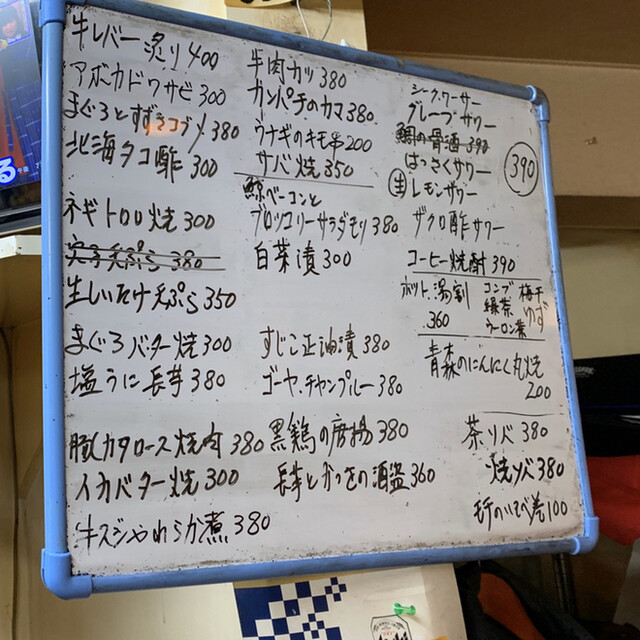 牛レバー炙り400
アボカドワサビ300
まぐろとすずきコブメ380
北海タコ酢300
ネギトロ焼300
穴子天ぷら380
生しいたけ天ぷら350
まぐろバター焼300
塩うに長芋380
豚カタロース焼肉380
イカバター焼300
牛スジやわらか煮380
牛肉カツ380
カンパチのカマ380
ウナギのキモ串200
サバ焼350
鯨ベーコンと
ブロッコリーサラダモリ380
白菜漬300
すじこ正油漬380
ゴーヤ.チャンプルー380
黒鶏の唐揚380
長芋とかつをの酒盗360
シークワーサー
グレープサワー
鯛の骨酒390
はっさくサワー
生レモンサワー
390
ザクロ酢サワー
コーヒー焼酎390
ホット.湯割
360
コンブ 梅干
緑茶 ゆず
ウーロン茶
青森のにんにく丸焼
200
茶ソバ380
焼ソバ380
る